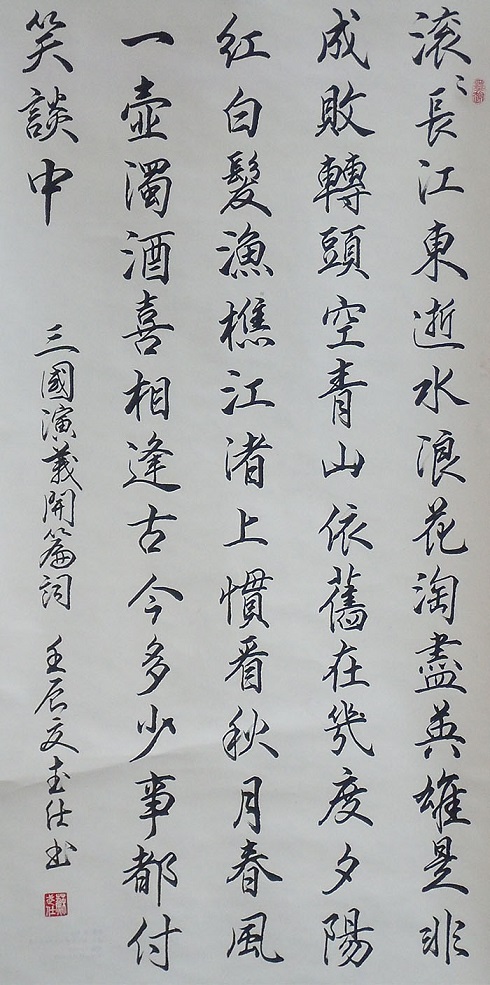 滚〻長江東逝水浪花淘盡英雄是非
成敗轉頭空青山依舊在幾度夕陽
紅白髮漁樵江渚上慣看秋月春風
一壺濁酒喜相逢古今多少事都付
笑談中
三國演義開篇詞 壬辰夏志仕书